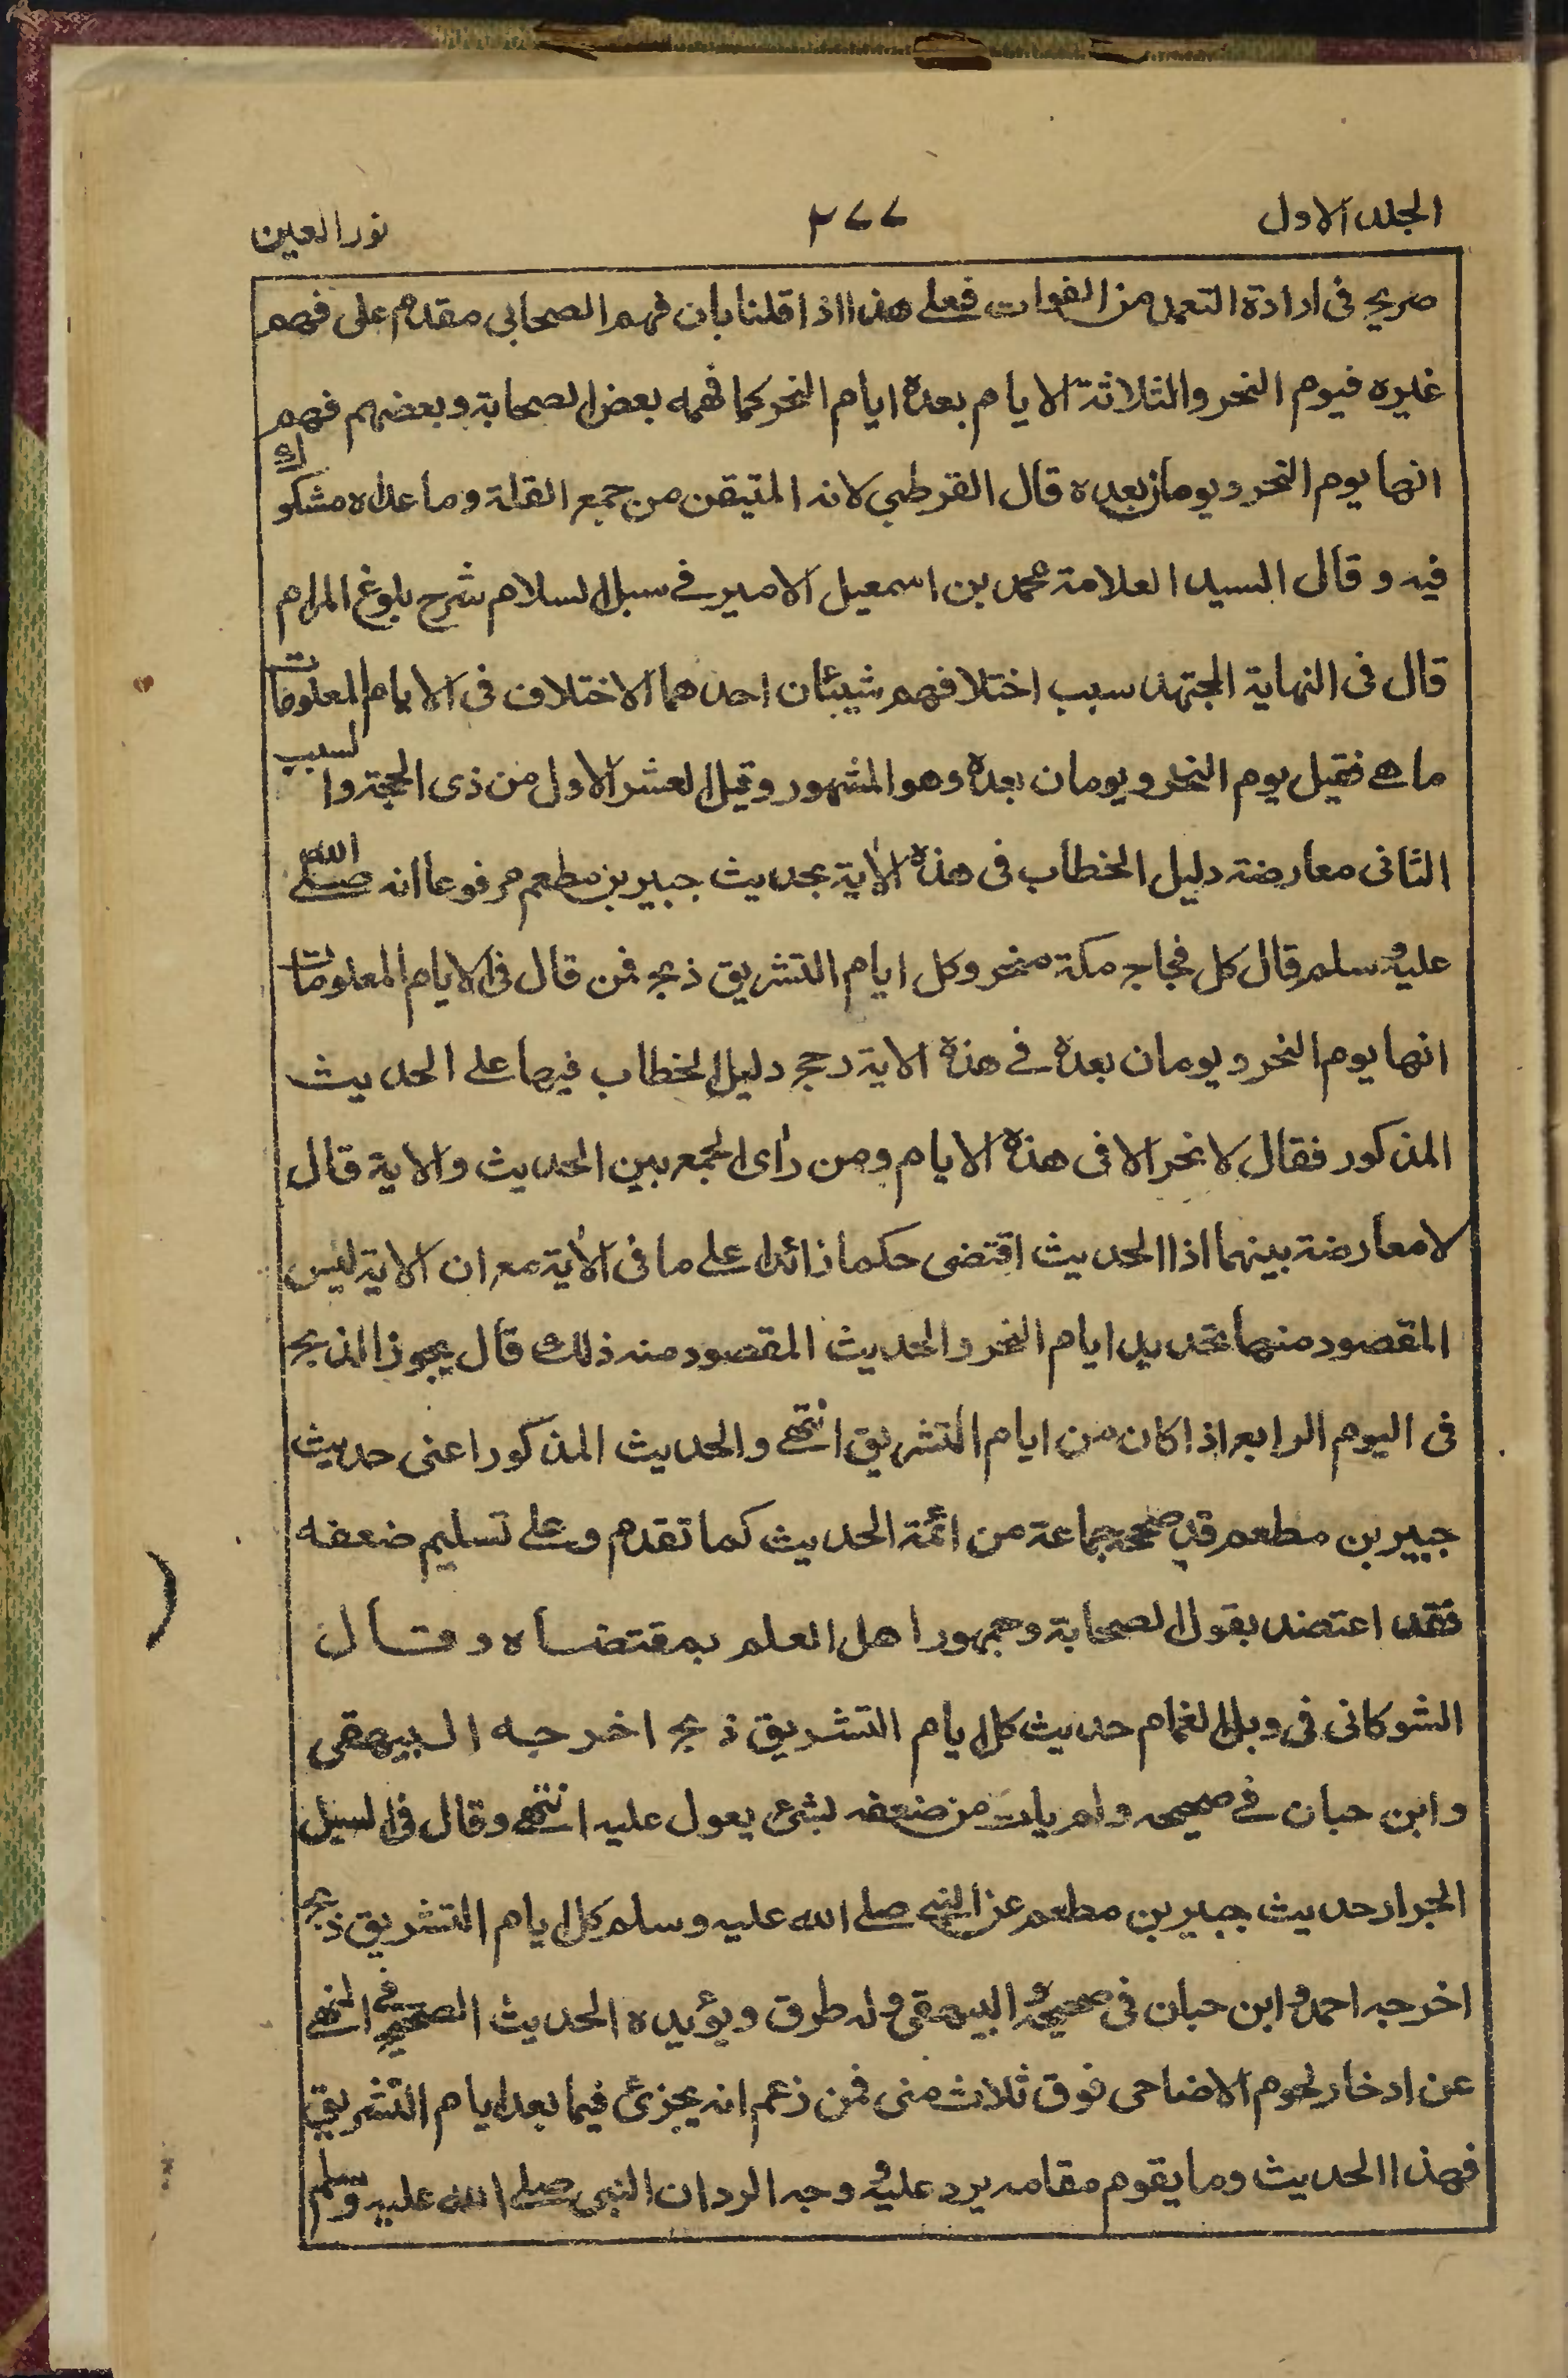 الجلد الاول ٢٧٧ نور العين
صريح فى ارادة التعمد من الفوات فعلى هذا اذا قلنا بان فهم الصحابى مقدم على فهم
غيره فيوم النحر والثلاثة الايام بعده ايام النحر كما فهمه بعض الصحابة وبعضهم فهم
انها يوم النحر ويومان بعده قال القرطبى لانه المتيقن من جمع القلة وما عداه مشكوك
فيه وقال السيد العلامة محمد بن اسمعيل الامير فے سبل السلام شرح بلوغ المرام
قال فى النهاية المجتهد سبب اختلافهم شيئان احدهما الاختلاف فى الايام المعلومات
ما هے فقيل يوم النحر ويومان بعده وهو المشهور وقيل العشر الاول من ذى الحجة والسبب
الثانى معارضة دليل الخطاب فى هذه الاٰية بحديث جبير بن مطعم مرفوعا انه صلے الله
عليه وسلم قال كل فجاج مكة منحر وكل ايام التشريق ذبح فمن قال فى الايام المعلومات
انها يوم النحر ويومان بعده فے هذه الاية رجح دليل الخطاب فيها على الحديث
المذكور فقال لا نحر الا فى هذه الايام ومن راى الجمع بين الحديث والاية قال
لا معارضة بينهما اذا الحديث اقتضى حكما زائدا علے ما فى الاٰية مع ان الاية ليس
المقصود منها تحديد ايام النحر والحديث المقصود منه ذلك قال يجوز الذبح
فى اليوم الرابع اذا كان من ايام التشريق انتهے والحديث المذكور اعنى حديث
جبير بن مطعم قد صححه جماعة من ائمة الحديث كما تقدم وعلے تسليم ضعفه
فقد اعتضد بقول الصحابة وجمهور اهل العلم بمقتضاه وقال
الشوكانى فى وبل الغمام حديث كل ايام التشريق ذبح اخرجه البيهقى
وابن حبان فے صحيحه ولم يات من ضعفه بشئ يعول عليه انتهے وقال فى السيل
الجرار حديث جبير بن مطعم عن النبى صلے الله عليه وسلم كل ايام التشريق ذبح
اخرجه احمد وابن حبان فى صحيحه والبيهقى وله طرق ويؤيده الحديث الصحيح فى النهے
عن ادخار لحوم الاضاحى فوق ثلاث منى فمن زعم انه يجزئ فيما بعد ايام التشريق
فهذا الحديث وما يقوم مقامه يرد عليه ووجه الرد ان النبى صلے الله عليه وسلم